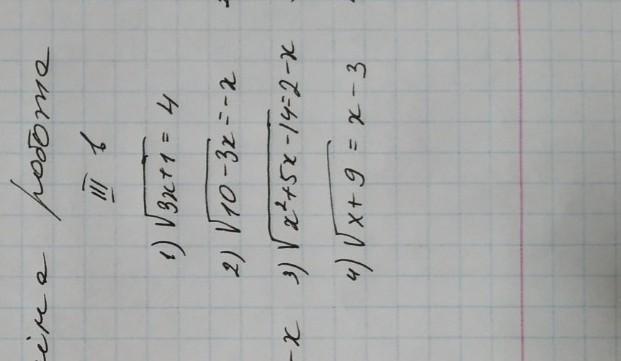 робота
III в
1) √3x+1 = 4
2) √10-3x = -x
3) √x²+5x-14 = 2-x
4) √x+9 = x-3
-x